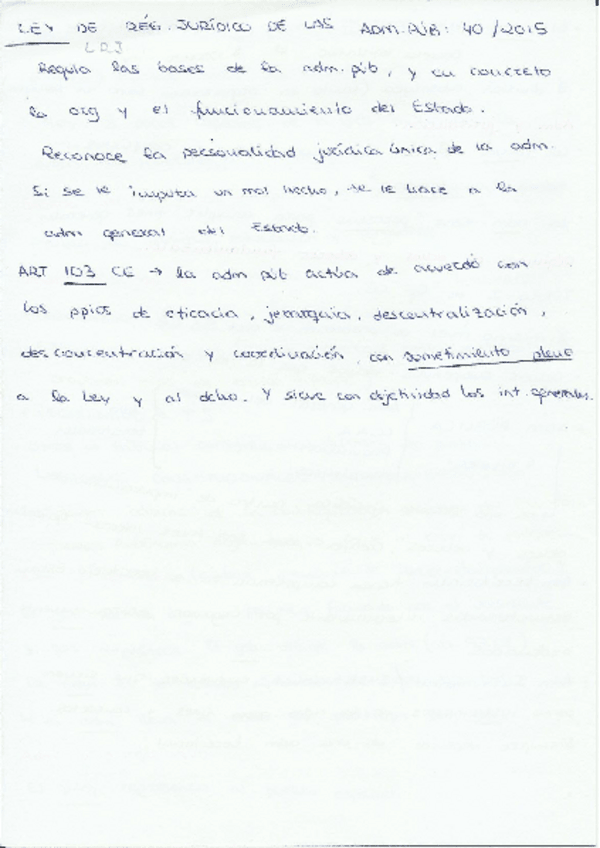 LEY DE RÉG. JURÍDICO DE LAS ADM. PÚB: 40/2015
LRJ
Regula las bases de la adm. púb, y en concreto
la org y el funcionamiento del Estado.
Reconoce la personalidad jurídica única de la adm.
Si se le imputa un mal hecho, se le hace a la
adm general del Estado.
ART 103 CE → la adm púb actúa de acuerdo con
los ppios de eficacia, jerarquía, descentralización,
desconcentración y coordinación, con sometimiento pleno
a la Ley y al dcho. Y sirve con objetividad los int. generales.